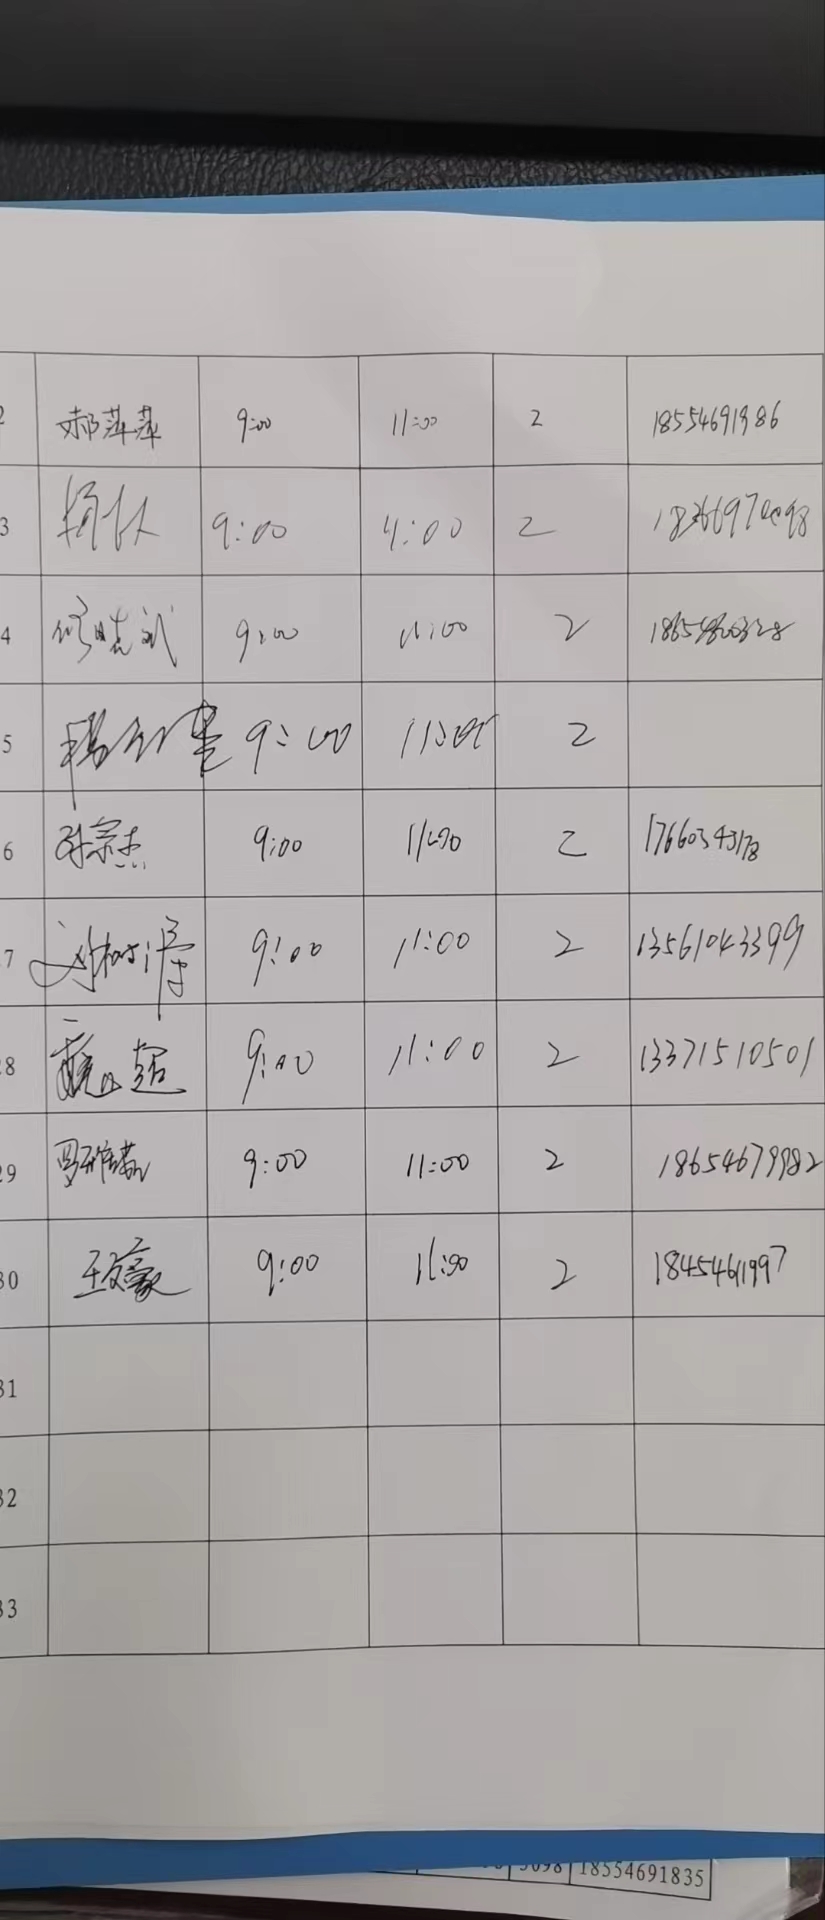 2 郝萍萍 9:00 11:00 2 18554691986
3 9:00 11:00 2
4 9:00 11:00 2
5 9:00 11:00 2
6 孙宗杰 9:00 11:00 2 17660343178
7 刘树涛 9:00 11:00 2 13561043399
28 超 9:00 11:00 2 13371510501
29 9:00 11:00 2 18654679982
30 王文豪 9:00 11:00 2 18454641997
31
32
33
5098 18554691835